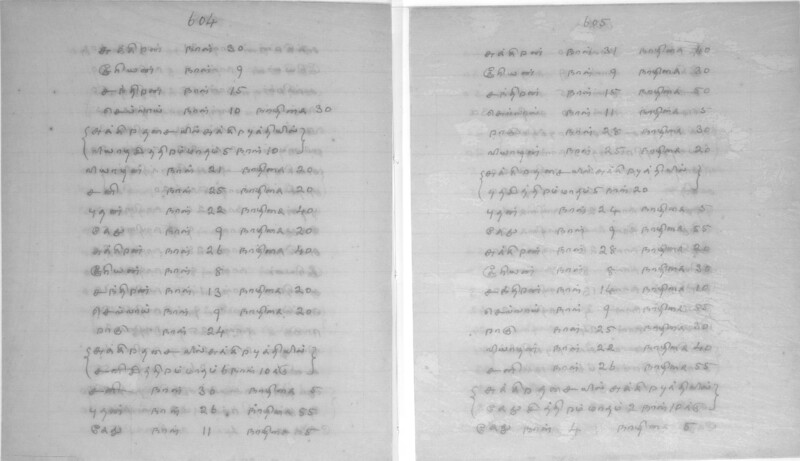 604
சுக்கிரன் நாள் 30
சூரியன் நாள் 9
சந்திரன் நாள் 15
செவ்வாய் நாள் 10 நாழிகை 30
சுக்கிர தசையில் சுக்கிர புத்தியில்
வியாழ மாதம் 5 நாள் 10
வியாழன் நாள் 21 நாழிகை 20
சனி நாள் 25 நாழிகை 20
புதன் நாள் 22 நாழிகை 40
கேது நாள் 9 நாழிகை 20
சுக்கிரன் நாள் 26 நாழிகை 40
சூரியன் நாள் 8 நாழிகை
சந்திரன் நாள் 13 நாழிகை 20
செவ்வாய் நாள் 9 நாழிகை 20
ராகு நாள் 24
சுக்கிர தசையில் சுக்கிர புத்தியில்
சனி மாதம் 6 நாள் 10
சனி நாள் 30 நாழிகை 5
புதன் நாள் 26 நாழிகை 55
கேது நாள் 11 நாழிகை 5
605
சுக்கிரன் நாள் 31 நாழிகை 40
சூரியன் நாள் 9 நாழிகை 30
சந்திரன் நாள் 15 நாழிகை 50
செவ்வாய் நாள் 11 நாழிகை 5
ராகு நாள் 28 நாழிகை 30
வியாழன் நாள் 25 நாழிகை 20
சுக்கிர தசையில் சுக்கிர புத்தியில்
புதன் மாதம் 5 நாள் 20
புதன் நாள் 24 நாழிகை 5
கேது நாள் 9 நாழிகை 55
சுக்கிரன் நாள் 28 நாழிகை 20
சூரியன் நாள் 8 நாழிகை 30
சந்திரன் நாள் 14 நாழிகை 10
செவ்வாய் நாள் 9 நாழிகை 55
ராகு நாள் 25 நாழிகை 30
வியாழன் நாள் 22 நாழிகை 40
சனி நாள் 26 நாழிகை 55
சுக்கிர தசையில் சுக்கிர புத்தியில்
கேது மாதம் 2 நாள் 10
கேது நாள் 4 நாழிகை 5